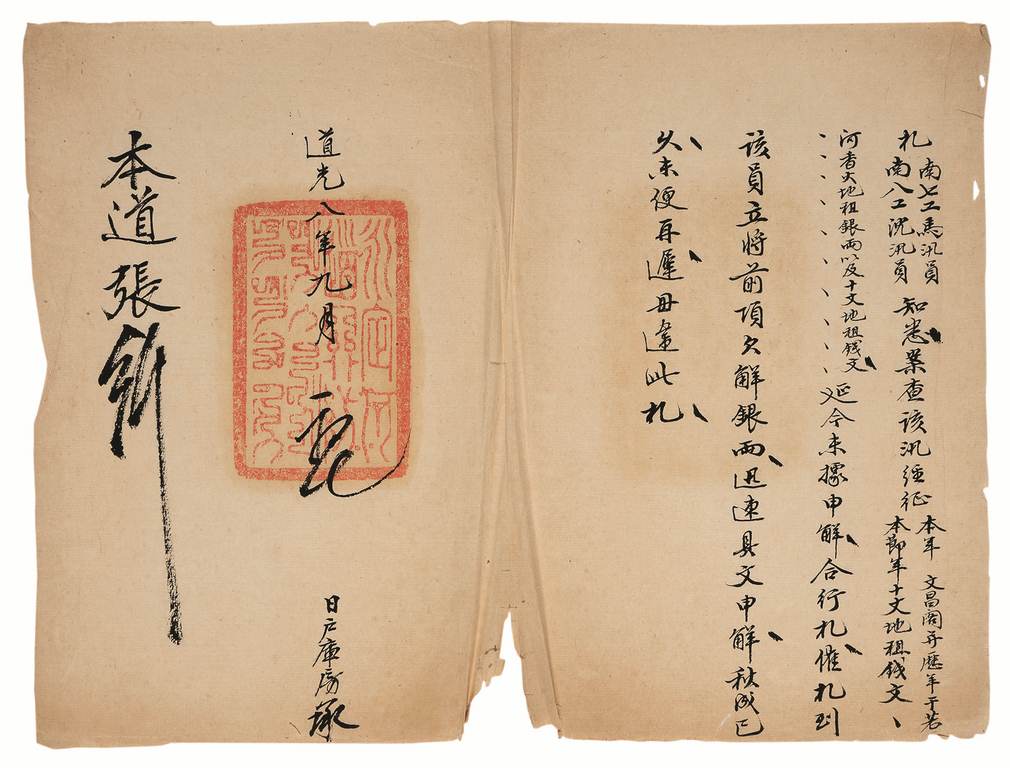 札
南七工馬汛員
南八工沈汛員
知悉案查該汛經征
本年 文昌閣并歷年于若
本節年十文地租錢文
河者大地租銀兩以及十文地租錢文
延今未據申解合行札催札到
該員立將前項欠解銀兩迅速具文申解秋成已
久未便再遲毋違此札
道光八年九月
日戶庫房承
本道張